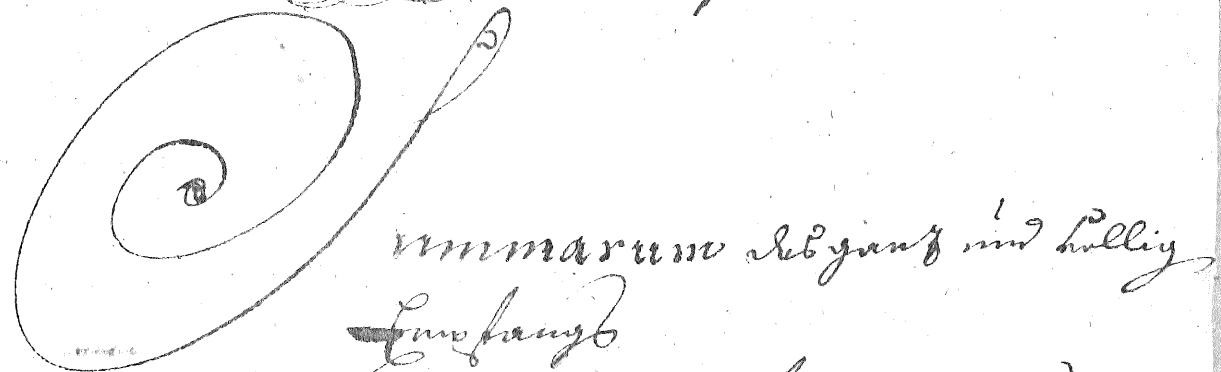 Summarum des ganz und völlig
Empfangs